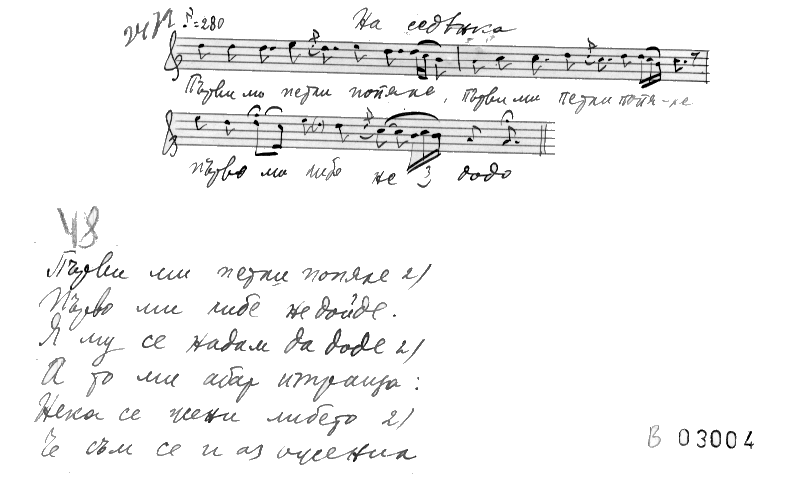 ♪=280 На седянка
Първи ми петли попяле, първи ми петли попя-ле
първо ми либе не додо
48
Първи ми петли попяле 2/
Първо ми либе не дойде.
Я му се надам да доде 2/
А то ми абар ипраща:
Нека се жени либето 2/
Че съм се и аз оженил
В 03004